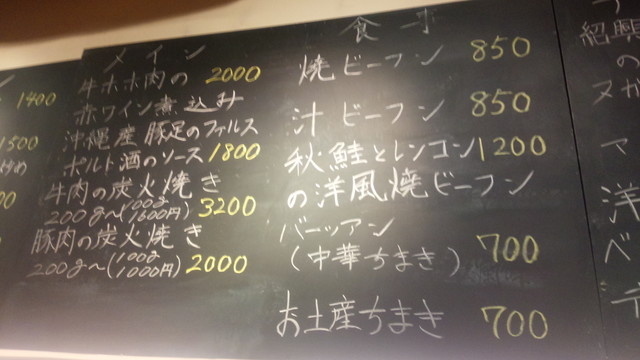 メイン
牛ホホ肉の 2000
赤ワイン煮込み
沖縄産豚足のファルス
ポルト酒のソース 1800
牛肉の炭火焼き
200g〜(100g 1600円) 3200
豚肉の炭火焼き
200g〜(100g 1000円) 2000
食
焼ビーフン 850
汁ビーフン 850
秋鮭とレンコン 1200
の洋風焼ビーフン
バーッアン
(中華ちまき) 700
お土産ちまき 700
1400
1500
紹興
の
ヌガ
マ
洋
ベ
デ